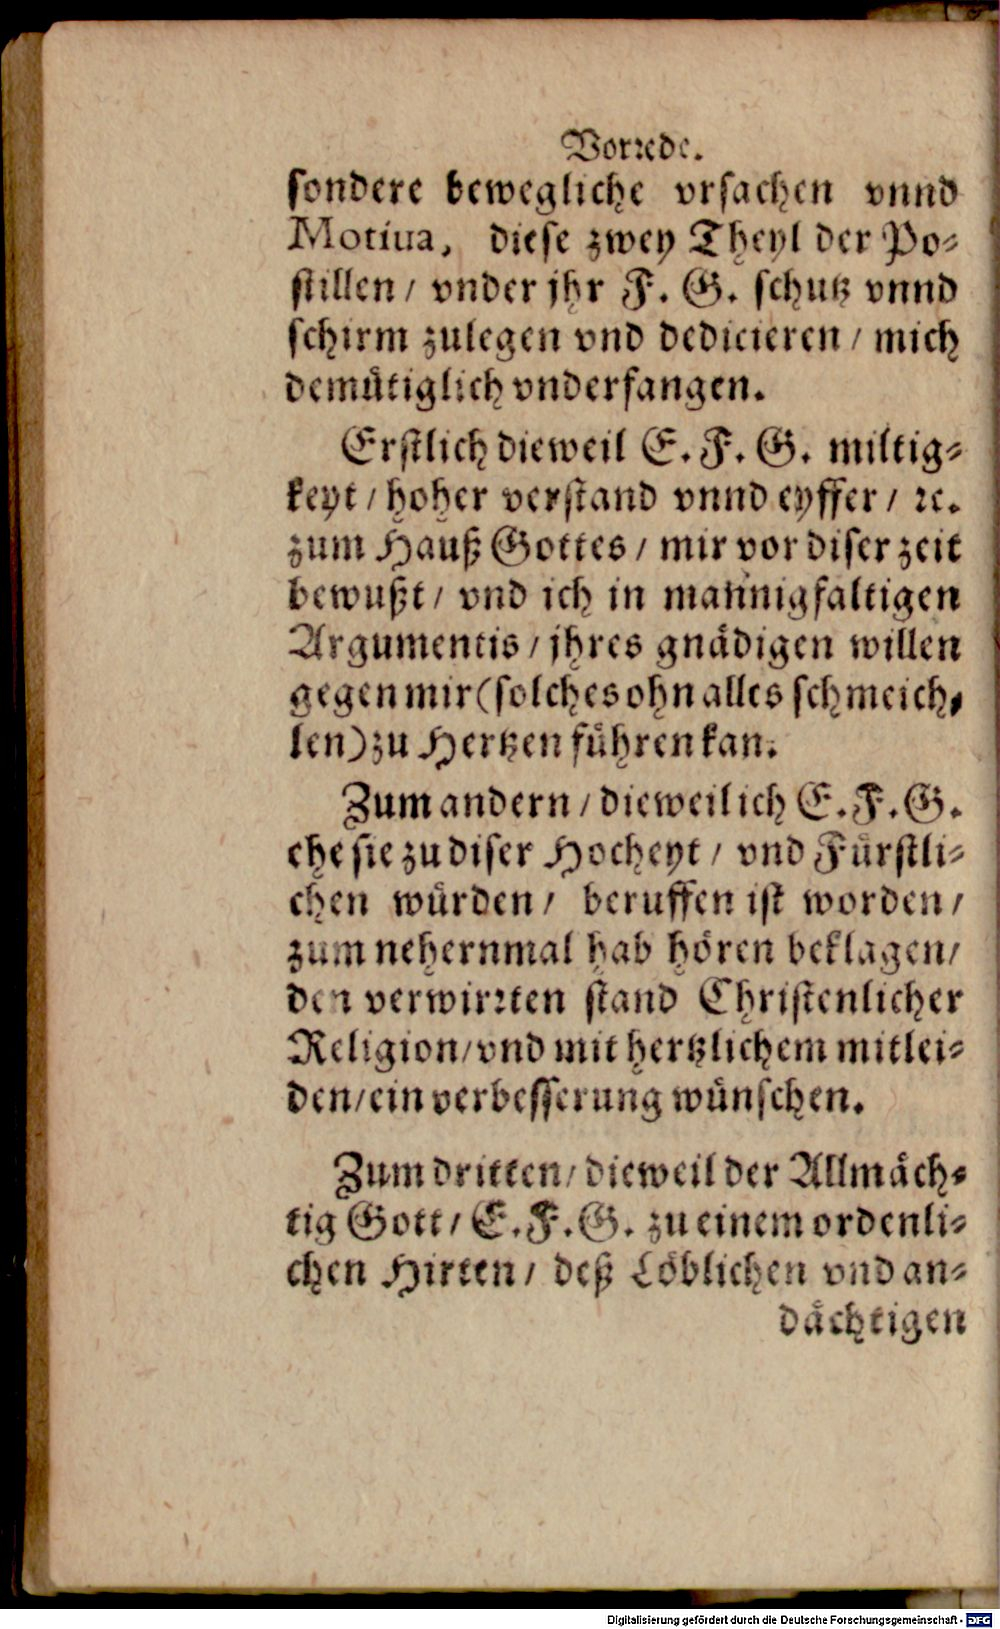 Vorꝛede.
sondere bewegliche vrsachen vnnd
Motiua, diese zwey Theyl der Po⸗
stillen / vnder jhr F. G. schutz vnnd
schirm zulegen vnd dedicieren / mich
demütiglich vnderfangen.
Erstlich dieweil E. F. G. miltig⸗
keyt / hoher verstand vnnd eyffer / ꝛc.
zum Hauß Gottes / mir vor diser zeit
bewußt / vnd ich in mannigfaltigen
Argumentis / jhres gnädigen willen
gegen mir (solches ohn alles schmeich⸗
len) zu Hertzen führen kan.
Zum andern / dieweil ich E. F. G.
ehe sie zu diser Hocheyt / vnd Fürstli⸗
chen würden / beruffen ist worden /
zum nehernmal hab hören beklagen /
den verwirꝛten stand Christenlicher
Religion / vnd mit hertzlichem mitlei⸗
den / ein verbesserung wünschen.
Zum dritten / dieweil der Allmäch⸗
tig Gott / E. F. G. zu einem ordenli⸗
chen Hirten / deß Löblichen vnd an⸗
dächtigen
Digitalisierung gefördert durch die Deutsche Forschungsgemeinschaft - DFG